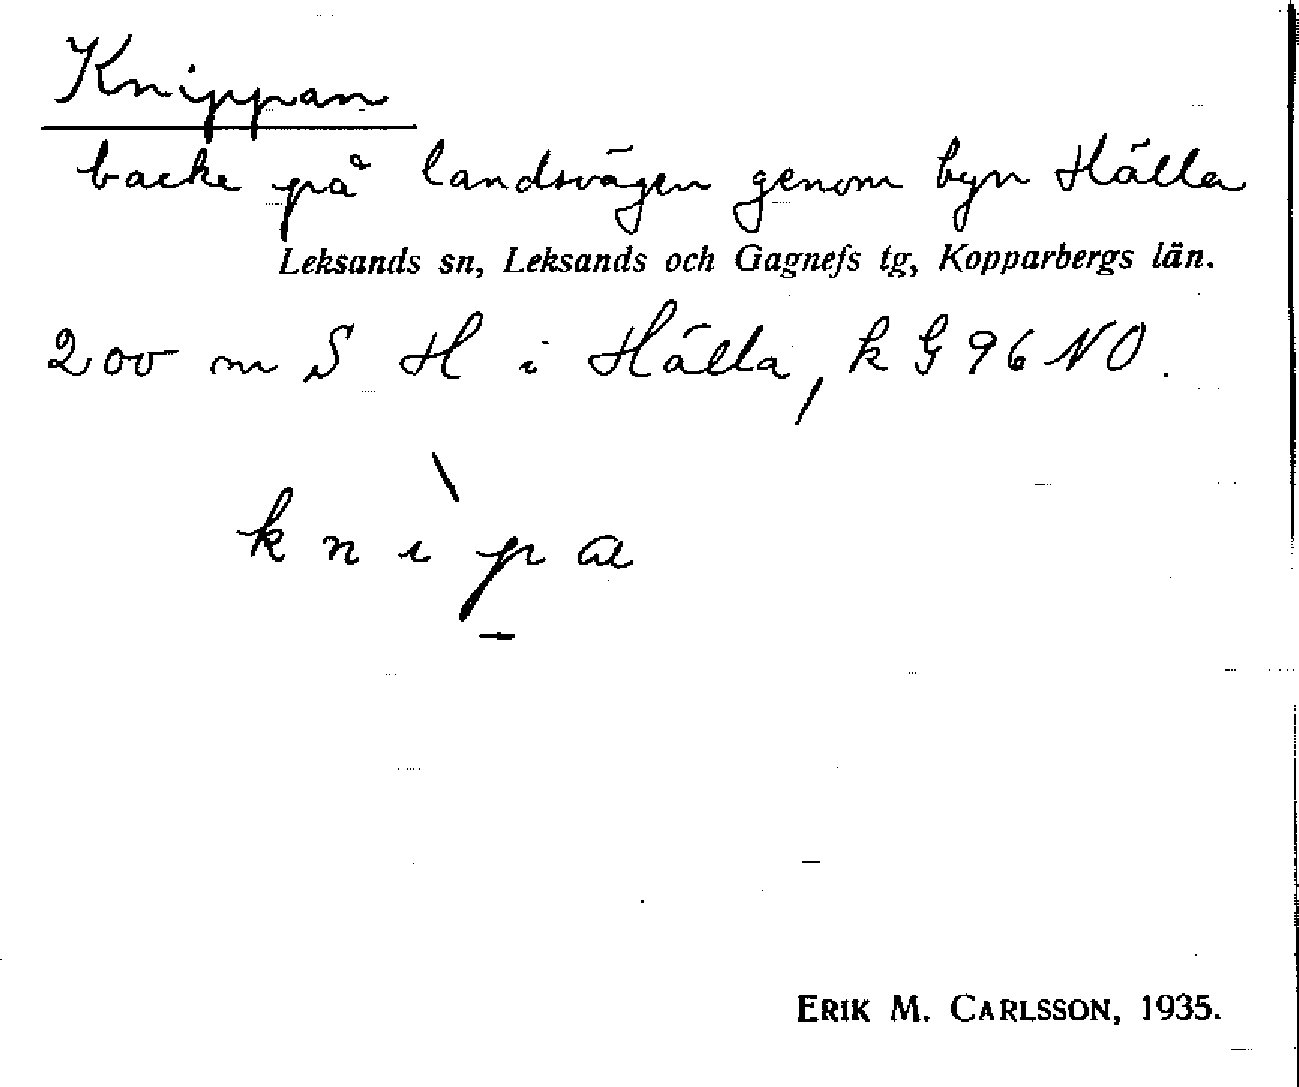 Knippan
backe på landsvägen genom byn Hälla
Leksands sn, Leksands och Gagnefs tg, Kopparbergs län.
200 m S H i Hälla, k G 96 NO.
knìpa
ERIK M. CARLSSON, 1935.